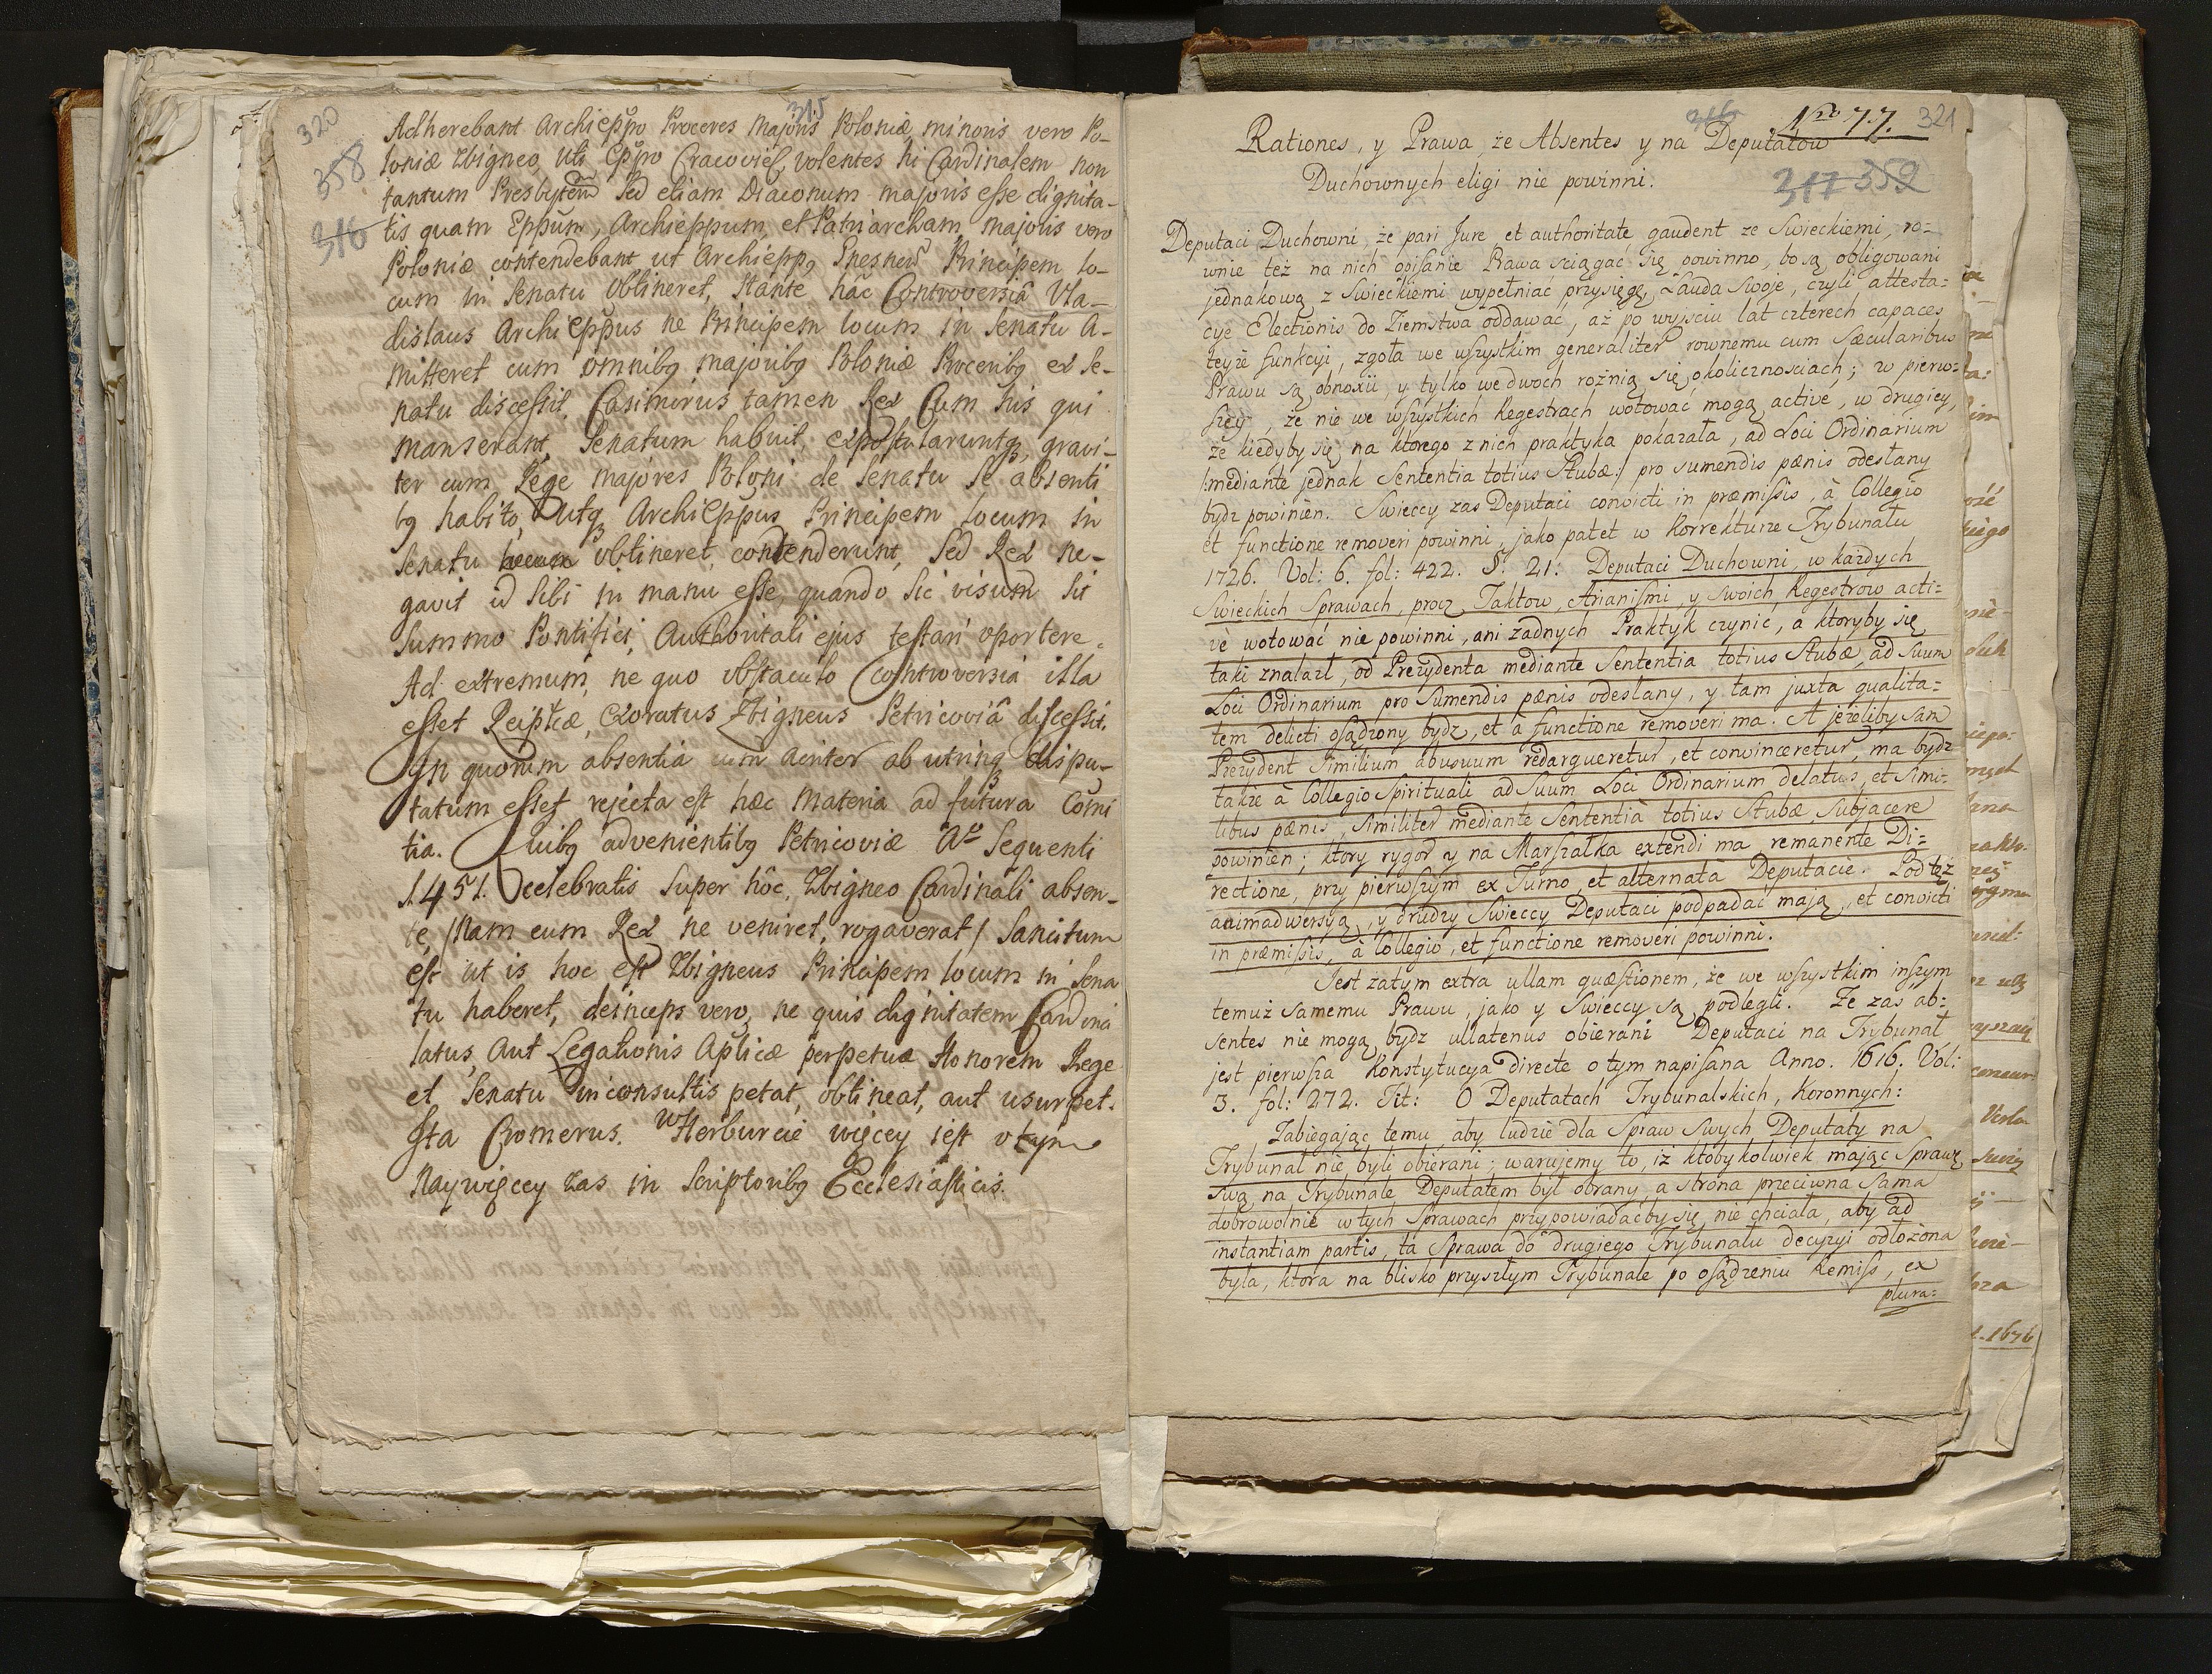 320
315
358
316
Adherebant Archieppo Proceres Majoris Poloniæ, minoris vero Po-
loniæ Zbigneo, uti Eppo Cracovieñ, volentes hi Cardinalem non
tantum Presbyterũ Sed etiam Diaconum majoris esse dignita-
tis quam Eppum, Archieppum, et Patriarcham, majoris vero
Poloniæ contendebant ut Archiepp9 Gnesneñ Principem lo-
cum in Senatu obtineret, Stante hâc Controversiâ Vla-
dislaus Archieppus ne Principem locum in Senatu a-
mitteret cum omnibq majoribq Poloniæ Proceribq ex Se-
natu discessit. Casimirus tamen Rex Cum his qui
manserant, Senatum habuit, expostularuntq gravi-
ter cum Rege majores Poloni de Senatu Se absenti
bq habito, Utq Archieppus Principem locum in
Senatu obtineret, contenderunt, Sed Rex ne-
gavit id Sibi in manu esse, quando Sic visum Sit
Summo Pontifici, Authoritati ejus testari oportere.
Ad extremum, ne quo obstaculo Controversia illa
esset Reiplcæ, exoratus Zbigneus Petricoviâ discessit.
In quorum absentia cum acriter ab utrinq dispu-
tatum esset, rejecta est hæc materia ad futura Comi
tia. Quibq advenientibq Petricoviæ Aº Sequenti
1451. celebratis Super hôc, Zbigneo Cardinali absen-
te, /Nam eum Rex ne veniret, rogaverat/ Sancitum
est ut is hoc est Zbigneus Principem locum in Sena
tu haberet, deinceps vero, ne quis dignitatem Cardina
latus, Aut Legationis Aplicæ perpetuæ Honorem Rege
et Senatu inconsultis petat, obtineat, aut usurpet.
Ita Cromerus. W Herburcie więcey iest o tym
Naywięcey zas in Scriptoribq Ecclesiasticis.
316
Nro 77.
321
317 359
Rationes, y Prawa, że Absentes y na Deputatow
Duchownych eligi nie powinni.
Deputaci Duchowni, że pari Jure et authoritate gaudent ze Swieckiemi, ro=
wnie też na nich opisanie Prawa sciągać się powinno, bo są obligowani
jednakową z Swieckiemi wypełniać przysięgę, Lauda Swoje, czyli attesta=
cye Electionis do Ziemstwa oddawać, aż po wyjsciu lat czterech capaces
teyże funkcyi, zgoła we wszystkim generaliter rownemu cum Sæcularibus
Prawu są obnoxii, y tylko we dwoch rożnią się okolicznosciach; w pierw=
szey, że nie we wszystkich Regestrach wotować mogą activé, w drugiey,
że kiedyby się na ktorego z nich praktyka pokazała, ad Loci Ordinarium
/:mediante jednak Sententia totius Stubæ:/ pro sumendis pænis odesłany
bydz powinien. Swieccy zas Deputaci convicti in præmissis, à Collegio
et functione removeri powinni, jako patet w Korrekturze Trybunału
1726. Vol: 6. fol: 422. §. 21. Deputaci Duchowni, w każdych
Swieckich Sprawach, procz Taktow, Arianismi, y Swoich Regestrow acti=
ve wotować nie powinni, ani żadnych Praktyk czynić, a ktoryby się
taki znalazł, od Prezydenta mediante Sententia totius Stubæ, ad Suum
Loci Ordinarium pro Sumendis pænis odesłany, y tam juxta qualita=
tem delicti osądzony bydz, et à functione removeri ma. A jeżeliby Sam
Prezydent Similium abusuum redargueretur, et convinceretur, ma bydz
także à Collegio Spirituali ad Suum Loci Ordinarium delatus, et Simi=
libus pænis, Similiter mediante Sententiâ totius Stubæ Subjacere
powinien; ktory rygor y na Marszałka extendi ma, remanente Di=
rectione, przy pierwszym ex Turno, et alternatâ Deputacie. Pod też
animadwersyą, y drudzy Swieccy Deputaci podpadać mają, et convicti
in præmissis, à Collegio, et functione removeri powinni.
Jest zatym extra ullam quæstionem, że we wszystkim inszym
temuż samemu Prawu, jako y Swieccy są podlegli. Że zas ab=
sentes nie mogą bydz ullatenus obierani Deputaci na Trybunał
jest pierwsza Konstytucya directe o tym napisana Anno. 1616. Vol:
3. fol: 272. Tit: O Deputatach Trybunalskich, Koronnych:
Zabiegając temu, aby ludzie dla Spraw Swych Deputaty na
Trybunał nie byli obierani; warujemy to, iż ktobykolwiek mając Sprawę
Swą na Trybunale Deputatem był obrany, a strona przeciwna Sama
dobrowolnie w tych Sprawach przypowiadać by się nie chciała, aby ad
instantiam partis, ta Sprawa do drugiego Trybunału decyzyi odłożona
była, ktora na blisko przyszłym Trybunale po osądzeniu Remiss, ex
plura=
1676